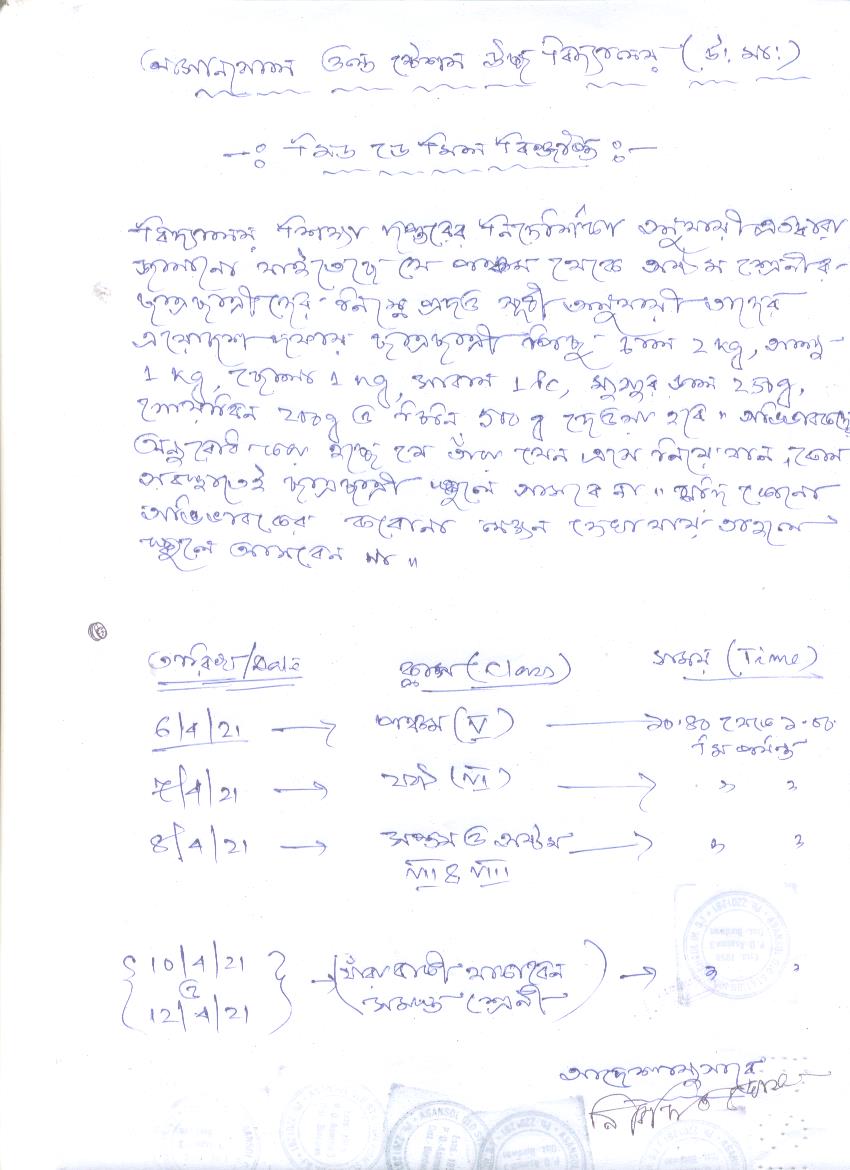 আসানসোল ওল্ড স্টেশন উচ্চ বিদ্যালয় (উঃ মাঃ)
—: মিড ডে মিল বিজ্ঞপ্তি :—
বিদ্যালয় শিক্ষা দপ্তরের নির্দেশিকা অনুযায়ী এতদ্বারা
জানানো যাইতেছে যে পঞ্চম থেকে অষ্টম শ্রেনীর
ছাত্রছাত্রীদের নিম্নে প্রদত্ত সূচী অনুযায়ী তাদের
ত্রয়োদশ দফায় ছাত্রছাত্রী পিছু চাল 2 kg, আলু
1 kg, ছোলা 1 kg, সাবান 1 Pc, মুসুর ডাল 250g,
সোয়াবিন ২০০g ও চিনি ৫০০g দেওয়া হবে। অভিভাবকদের
অনুরোধ করা হচ্ছে যে তাঁরা যেন এসে নিয়ে যান, কোন
অবস্থাতেই ছাত্রছাত্রী স্কুলে আসবে না। যদি কোনো
অভিভাবকের করোনা লক্ষন দেখা যায় তাহলে
স্কুলে আসবেন না।
তারিখ/Date ক্লাস (Class) সময় (Time)
6/4/21 → পঞ্চম (V) → ১০.৪০ থেকে ১.০০
মি পর্যন্ত
7/4/21 → ষষ্ঠ (VI) → " "
8/4/21 → সপ্তম ও অষ্টম → " "
VII & VIII
{10/4/21
ও
12/4/21} → (যাঁরা বাকী থাকবেন
সমস্ত শ্রেনী) → " "
আদেশানুসারে